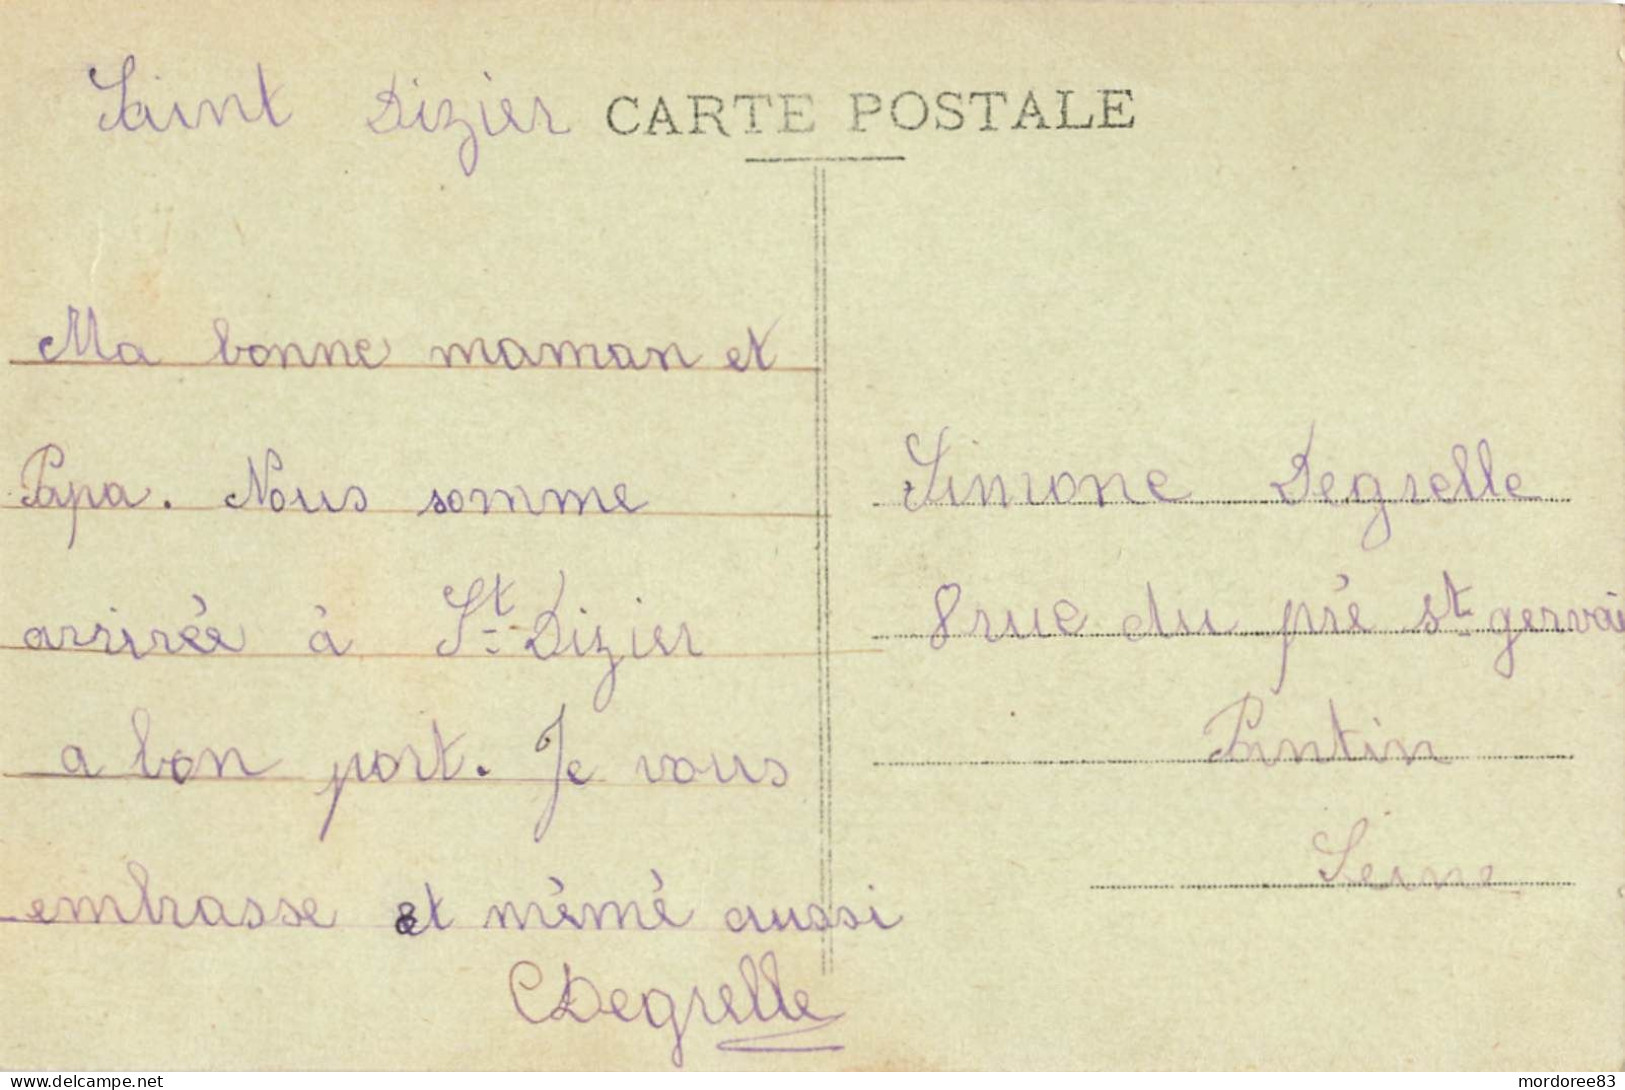 Saint Dizier
CARTE POSTALE
Ma bonne maman et
Papa. Nous somme
arrirée à St Dizier
a bon port. Je vous
embrasse et mèmè aussi
CDegrelle
Simone Degrelle
8 rue du pré st gervai
Pantin
Seine
www.delcampe.net
mordoree83